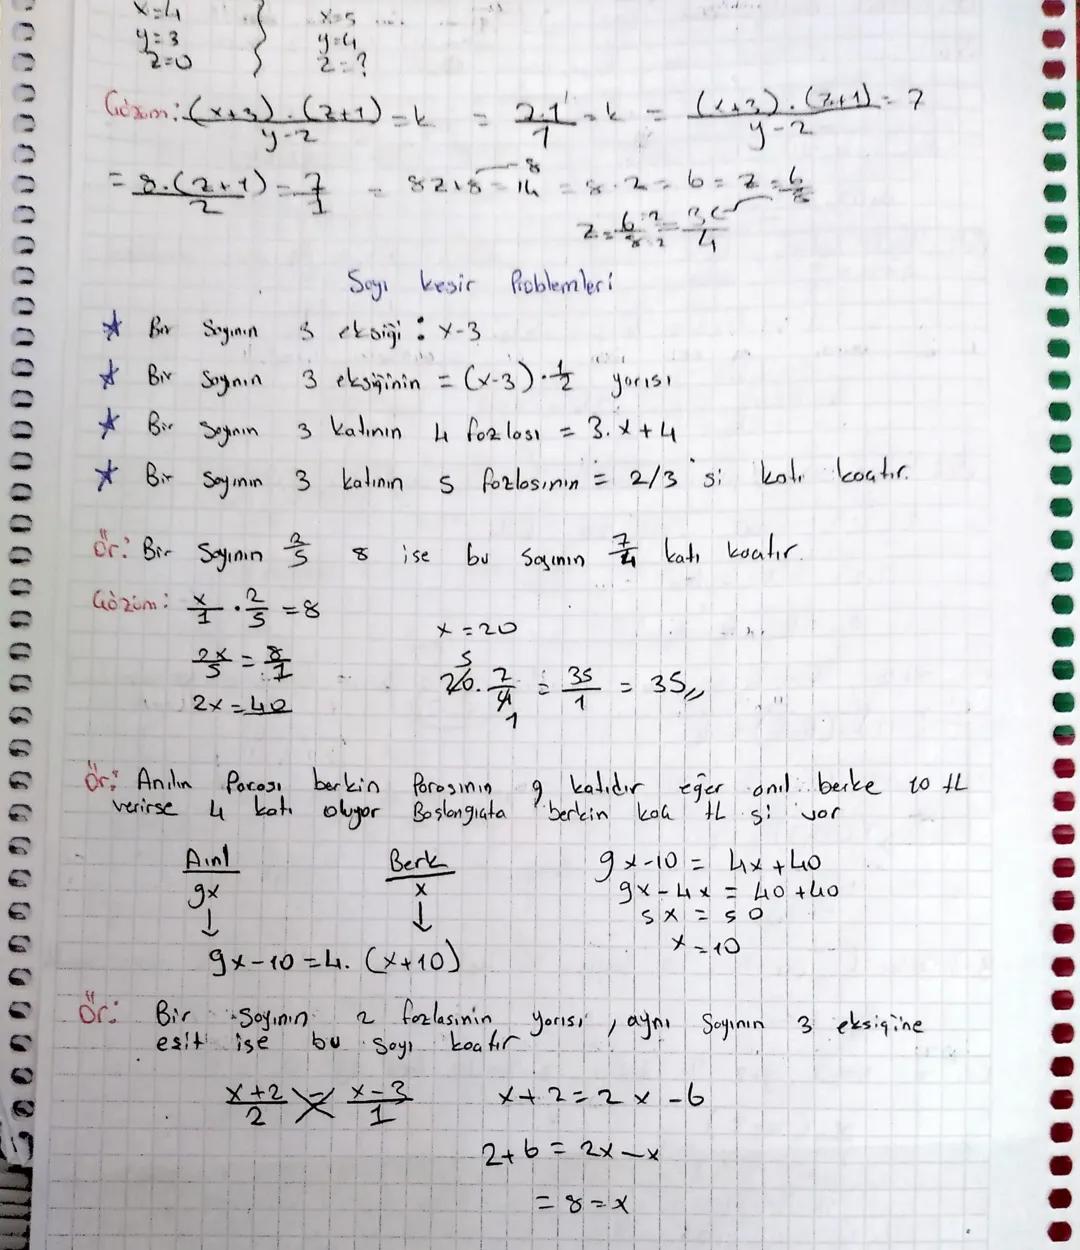 x=4
y=3
z=0
x=5
y=4
z=?
Çözüm: (x+3).(z+1)/y-2 = k = 7.1/1 = k = (x+3).(z+1)/y-2 = 7
= 8.(z+1)/2 = 7/1 = 8z+8 = 14 = 8.z = 6 = z = 6/8
z = 6:2/8:2 = 3/4
Sayı kesir Problemleri
★ Bir Sayının 3 eksiği : x-3
★ Bir Sayının 3 eksiğinin = (x-3).1/2 yarısı
★ Bir Sayının 3 katının 4 fazlası = 3.x+4
★ Bir Sayının 3 katının 5 fazlasının = 2/3 'si katı kaçtır.
Ör: Bir Sayının 2/5 8 ise bu sayının 7/4 katı kaçtır.
Çözüm: x/1 . 2/5 = 8
2x/5 = 8/1
2x = 40
x = 20
5
20. 7/4 = 35/1 = 35,,
1
Ör: Anılın Parası berkin Parasının 9 katıdır eğer anıl berke 10 tL
verirse 4 katı oluyor Başlangıçta berkin kaç tL si var
Aınl
9x
↓
Berk
x
↓
9x-10 = 4.(x+10)
9x-10 = 4x+40
9x-4x = 40+40
5x = 50
x = 10
Ör: Bir Sayının 2 fazlasının yarısı, aynı Sayının 3 eksiğine
eşit ise bu sayı kaçtır
x+2/2 = x-3/1
x+2 = 2x-6
2+6 = 2x-x
= 8 = x